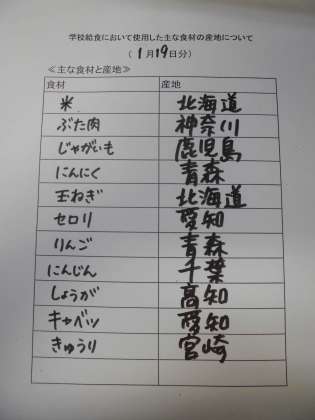 学校給食において使用した主な食材の産地について
(1月19日分)
≪主な食材と産地≫
食材 産地
米 北海道
ぶた肉 神奈川
じゃがいも 鹿児島
にんにく 青森
玉ねぎ 北海道
セロリ 愛知
りんご 青森
にんじん 千葉
しょうが 高知
キャベツ 愛知
きゅうり 宮崎